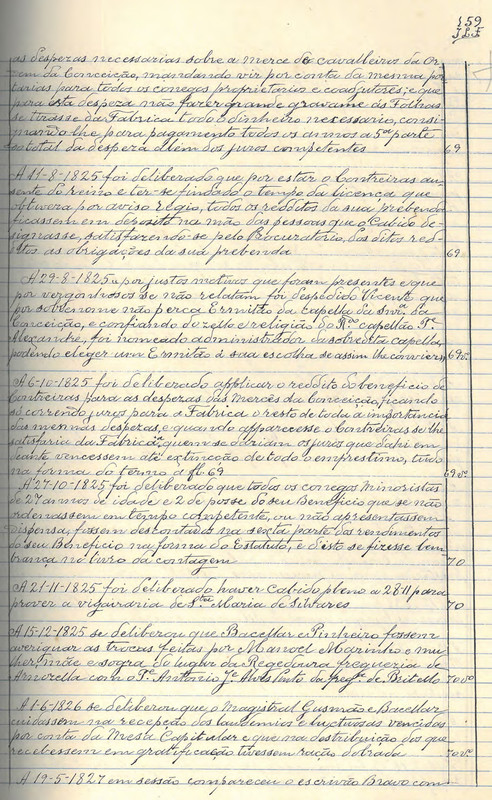 159
J.L.F
as despezas necessarias sobre a merce de cavalleiros da Or-
dem da Conceição, mandando vir por conta da mesma por
tarias para todos os conegos proprietarios e coadjutores; e que
para esta despeza não fazer grande gravame ás Folhas
se tirasse da Fabrica todo o dinheiro necessario, consi-
gnando-lhe para pagamento todos os annos a 5ª parte
do total da despeza alem dos juros competentes 69
A 11-8-1825 foi deliberado que por estar o Contreiras au-
sente do reino e ter-se findado o tempo da licença que
obtivera por aviso regio, todos os redditos da sua prebenda
ficassem em deposito na mão das pessoas que o Cabido de-
signasse, satisfazendo-se pelo Procuratorio, dos ditos red-
ditos as obrigações da sua prebenda 69
A 29-8-1825 por justos motivos que foram presentes e que
por vergonhosos se não relatam foi despedido Vicente que
por sobrenome não perca Ermitão da Capella da Snrª da
Conceição, e confiando do zello e religião do Rdo capellão Pe
Alexandre, foi nomeado administrador da sobredita capella,
podendo eleger um Ermitão á sua escolha se assim lhe conviesse 69vo
A 6-10-1825 foi deliberado applicar o reddito do beneficio de
Contreiras para as despezas das Mercês da Conceição, ficando
só correndo juros para a Fabrica o resto de toda a importancia
das mesmas despezas, e quando apparecesse o Contreiras se lhe
satisfaria da Fabrica, a quem se dariam os juros que d'ahi em
deante vencessem até extincção de todo o emprestimo, tudo
na forma do termo a fl. 69 69vo
A 27-10-1825 foi deliberado que todos os conegos Minoristas
de 27 annos de idade e 2 de posse do seu Beneficio que se não
ordenassem em tempo competente, ou não apresentassem
Dispensa, fossem descontados na sexta parte dos rendimentos
do seu Beneficio na forma do Estatuto, e d'isto se fizesse lem-
brança no livro da contagem 70
A 21-11-1825 foi deliberado haver Cabido pleno a 28-11 para
prover a vigairaria de Sta Maria de Silvares 70
A 15-12-1825 se deliberou que Bacellar e Pinheiro fossem
averiguar as trocas feitas por Manoel Marinho e mu-
lher, mãe e sogra do lugar da Regedoura freguezia de
com o Pe Antonio Je da fregª de Britello 70vo
A 1-6-1826 se deliberou que o Magistral Gusmão e Bacellar
cuidassem na recepção dos laudemios e luctuosas vencidos
por conta da Mesa Capitular e que na distribuição dos que
recebessem em gratificação tivessem ração dobrada 70vo
A 19-5-1827 em sessão compareceu o escrivão Bravo com